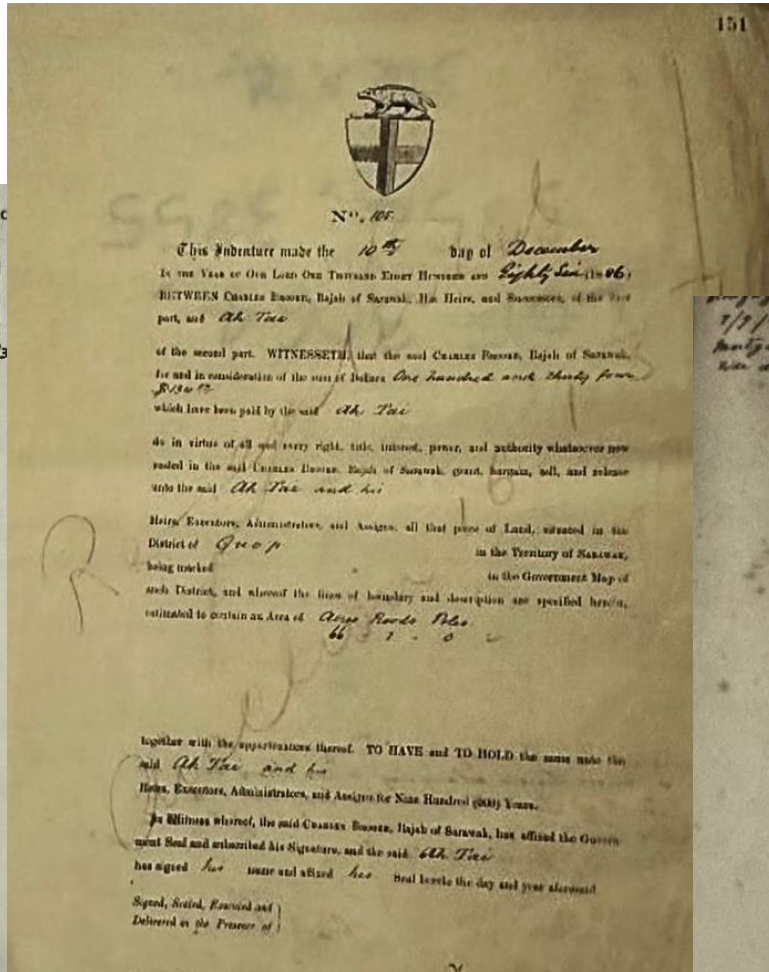 151
No. 105
This Indenture made the 10th day of December
In the Year of Our Lord One Thousand Eight Hundred and Eighty Six (1886)
BETWEEN Charles Brooke, Rajah of Sarawak, His Heirs, and Successors, of the first
part, and Ah Tae
of the second part. WITNESSETH, that the said Charles Brooke, Rajah of Sarawak,
for and in consideration of the sum of Dollars One hundred and thirty four
$134
which have been paid by the said Ah Tai
do in virtue of all and every right, title, interest, power, and authority whatsoever now
vested in the said Charles Brooke, Rajah of Sarawak, grant, bargain, sell, and release
unto the said Ah Tae and his
Heirs, Executors, Administrators, and Assigns, all that piece of Land, situated in the
District of Quop in the Territory of Sarawak,
being marked in the Government Map of
such District, and whereof the lines of boundary and description are specified herein,
estimated to contain an Area of Acres Roods Poles
66 2 0
together with the appurtenances thereof. TO HAVE and TO HOLD the same unto the
said Ah Tae and his
Heirs, Executors, Administrators, and Assigns for Nine Hundred (900) Years.
In Witness whereof, the said Charles Brooke, Rajah of Sarawak, has affixed the Govern
ment Seal and subscribed his Signature, and the said Ah Tai
has signed his name and affixed his Seal hereto the day and year aforesaid
Signed, Sealed, Executed and
Delivered in the Presence of